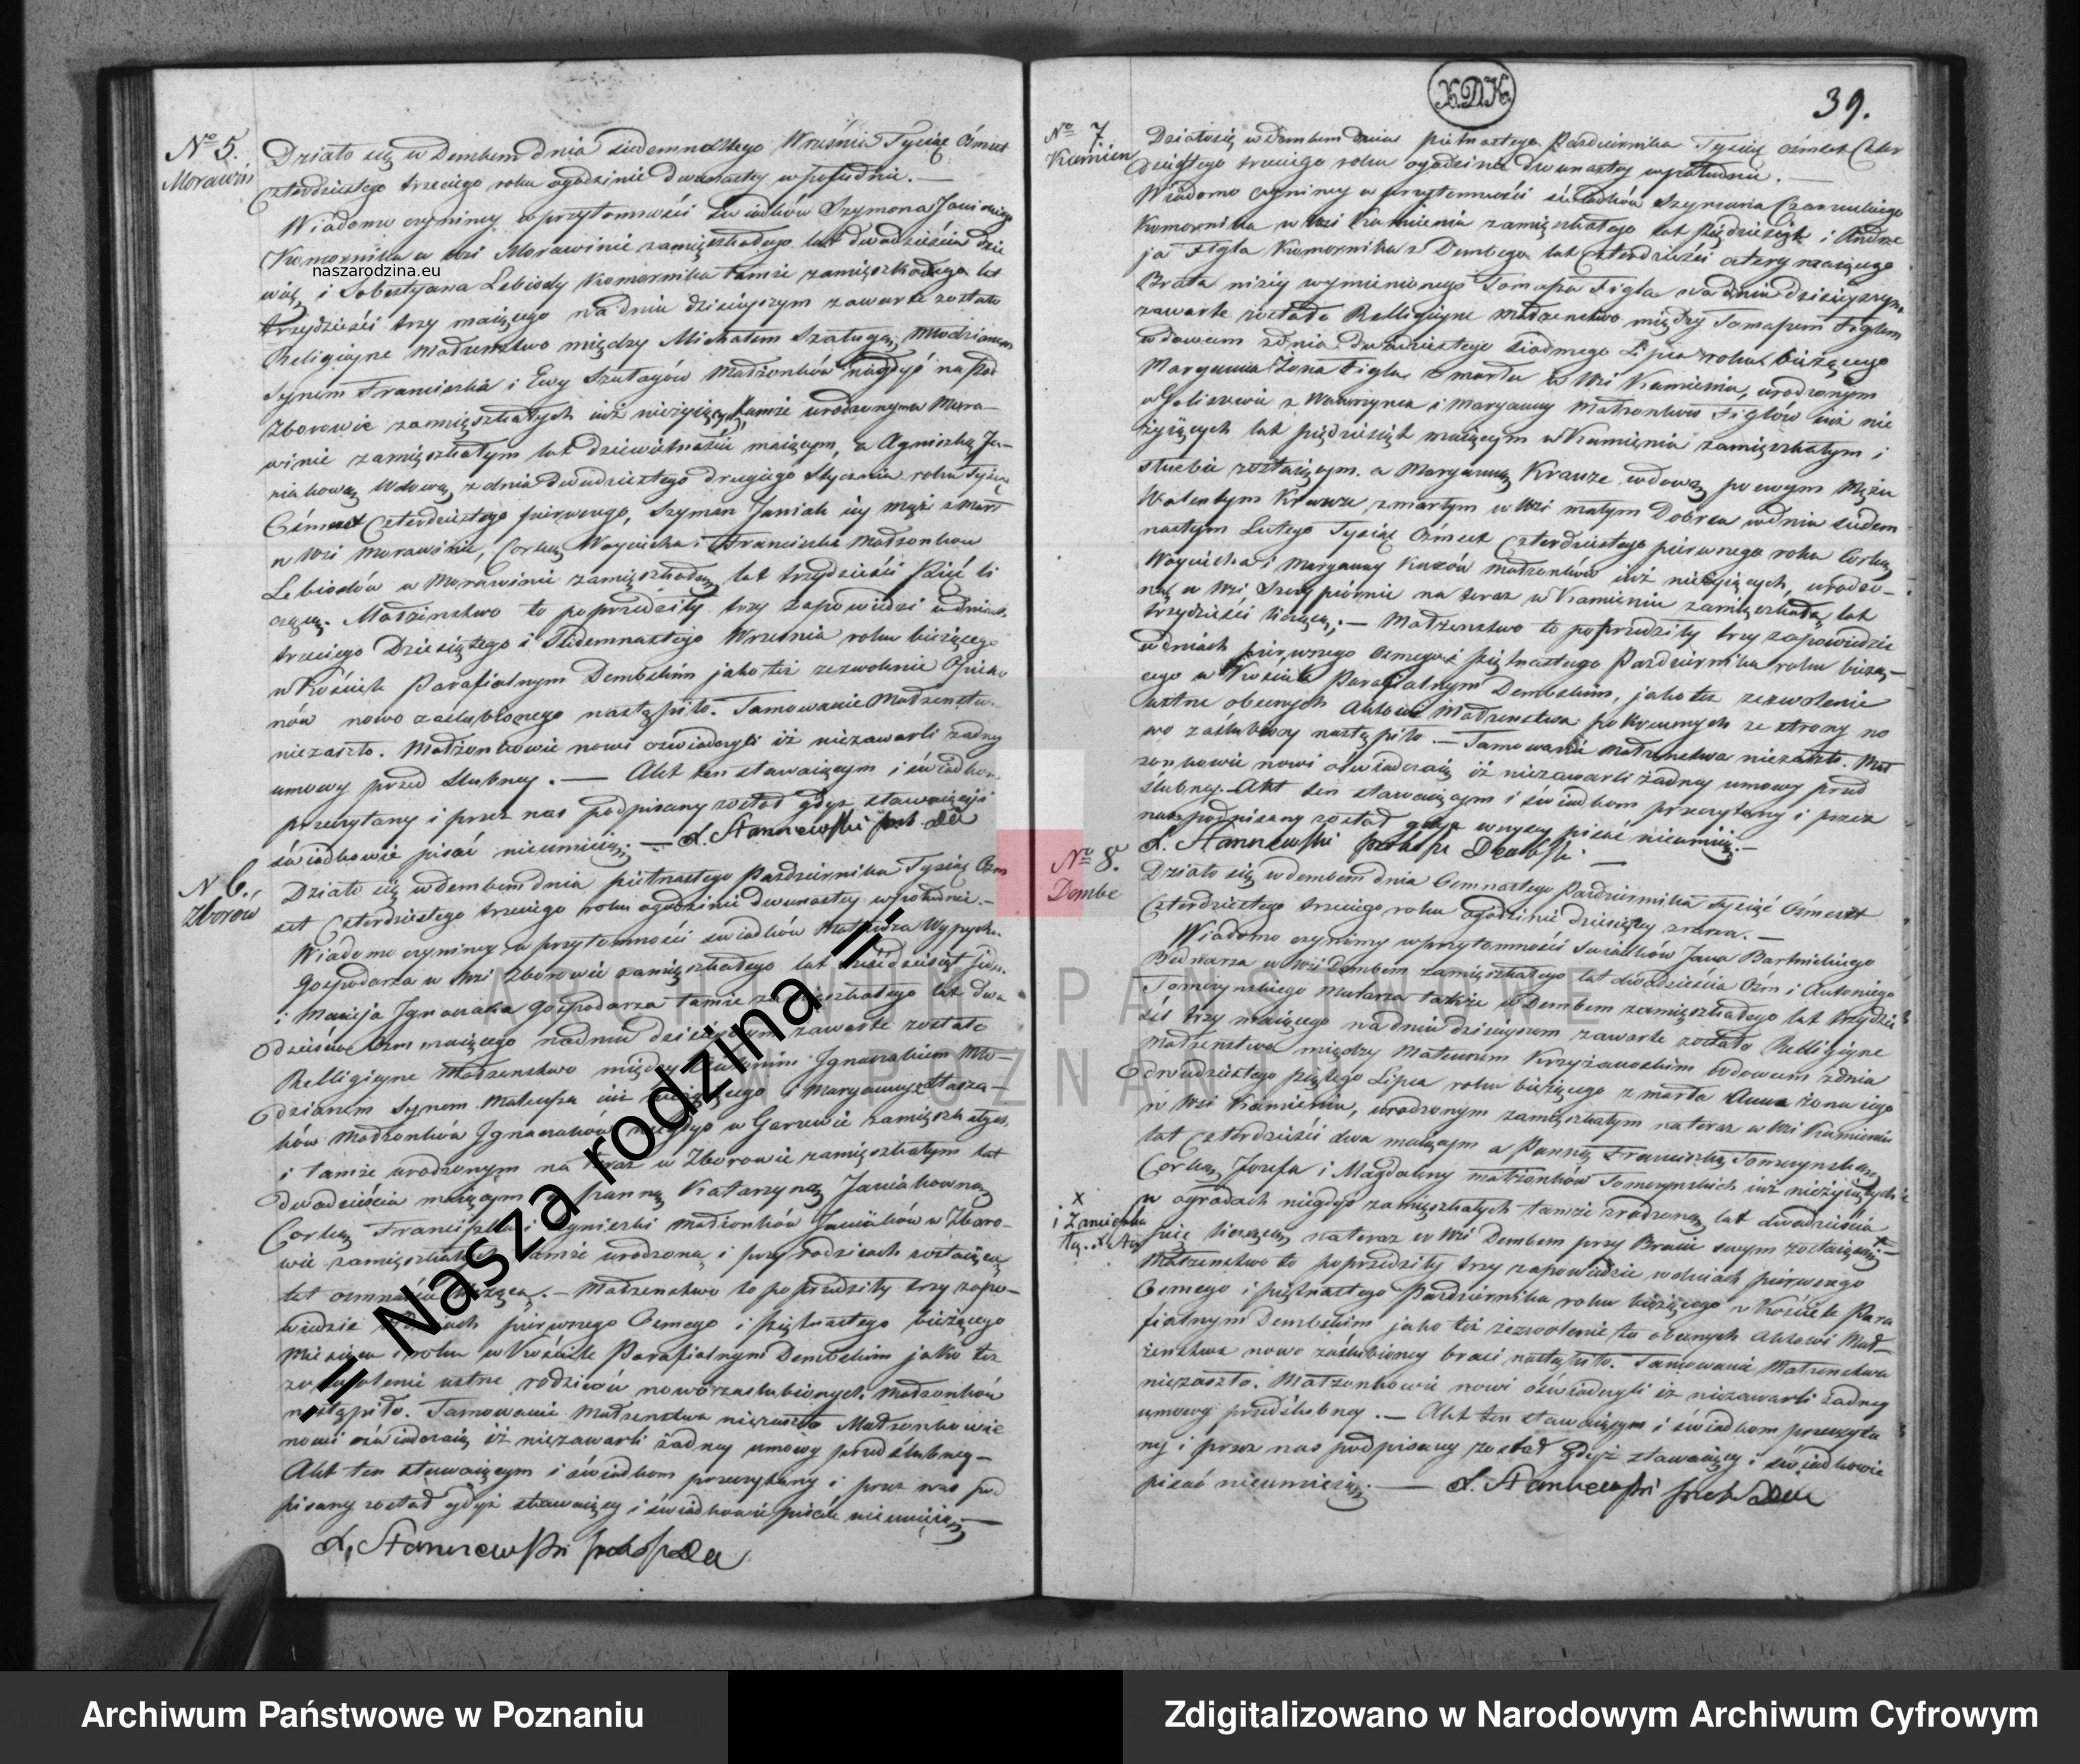 No 5.
Morawin
Działo się w Dembem dnia siedemnastego Września Tysiąc Ośmset
Czterdziestego trzeciego roku ogodzinie dwunastey w południe. —
Wiadomo czynimy w przytomności świadków Szymona
Komornika w wsi Morawinie zamięszkałego lat dwadzieścia dzie
naszarodzina.eu
więć, i Sobestyana Lebiody Komornika tamże zamięszkałego lat
trzydzieści trzy maiącego na dniu dzisieyszym zawarte zostało
Religiyne Małżenstwo między Michałem Szałągą, Młodzianem
synem Franciszka i Ewy Szałagów Małżonków niegdyś na Pod
Zborowie zamięszkałych iuż nieżyiących, tamże urodzonym w Mora-
winie zamięszkałym lat dziewiętnaście maiącym, a Agnieszką Ja-
niakową Wdową, z dnia dwudziestego drugiego Stycznia roku Tysiąc
Ośmset Czterdziestego pierwszego, Szyman Janiak iey mąż zmarł
w wsi Morawinie, Corką Woyciecha i Franciszki Małżonków
Lebiodów w Morawinie zamięszkałą, lat trzydzieści pięć li
czącą. Małżenstwo to poprzedziły trzy zapowiedzi w dniach
trzeciego Dziesiątego i Siedemnastego Września roku bieżącego
w Kościele Parafialnym Dembskim jako też zezwolenie Opieku
nów nowo zaślubionego nastąpiło. Tamowanie Małżenstwa
niezaszło. Małżonkowie nowi oświadczyli iż niezawarli żadney
umowy przed slubney. — Akt ten stawaiącym i świadkom
przeczytany i przez nas podpisany został gdyż stawaiący i
świadkowie pisać nieumieią. — X. Stanczewski prob. De
N 6.
Zborów
Działo się w dembem dnia piętnastego Pazdziernika Tysiąc Ośm
set Czterdziestego trzeciego roku ogodzinie dwunastey w południe. —
Wiadomo czynimy w przytomności świadków Wypych
Gospodarza w wsi Zborowie zamięszkałego lat
i Macieja Ignaczaka Gospodarza tamże zamięszkałego lat dwa
dzieścia Ośm maiącego nadniu dzisieyszym zawarte zostało
Relligiyne Małżenstwo między Ignaczakiem Mło-
dzianem Synem Mateusza iuż nieżyiącego i Maryanny z
ków Małżonków Ignaczaków niegdyś w Garzewie zamięszkałych
i tamże urodzonym na teraz w Zborowie zamięszkałym lat
dwadzieścia maiącym a panną Katarzyną Janiakowną
Corką Franciszka i Agnieszki Małżonków Janiaków w Zboro-
wie zamięszkałych tamże urodzoną i przy rodzicach zostaiącą
lat ośmnaście liczącą. — Małżenstwo to poprzedziły trzy zapo-
wiedzie w dniach pierwszego Osmego i piętnastego bieżącego
Miesiąca i roku w Kościele Parafialnym Dembskim jako też
zezwolenie ustne rodziców nowozaslubionych Małżonków
nastąpiło. Tamowanie Małżenstwa niezaszło Małżonkowie
nowi oświadczaią iż niezawarli żadney umowy przed slubney —
Akt ten stawaiącym i świadkom przeczytany i przez nas pod
pisany został gdyż stawaiący i świadkowie pisać nieumieią —
X. Stanczewski prob De
X.D.K.
39.
No 7.
Kamien
Działo się w Dembem dnia piętnastego Pazdziernika Tysiąc ośmset Czter
dziestego trzeciego roku ogodzinie dwunastey w południe. —
Wiadomo czynimy w przytomności świadków Szymona Czarneckiego
Komornika w wsi Kamieniu zamięszkałego lat pięćdziesiąt i Andrze
ja Figla Komornika z Dembego lat Czterdzieści cztery maiącego
Brata niżey wymienionego Tomasza Figla na dniu dzisieyszym
zawarte zostało Relligiyne Małżenstwo między Tomaszem Figlem
wdowcem z dnia dwudziestego siodmego Lipca roku bieżącego
Maryanna Żona Figla zmarła w wsi Kamieniu, urodzonym
w z Wawrzynca i Maryanny Małżonków Figlów iuż nie
żyiących lat pięćdziesiąt maiącym w Kamieniu zamięszkałym i
służbie zostaiącym. a Maryanną Krauze wdową po swym Mężu
Walentym Krauze zmarłym w wsi małym Dobrcu w dniu siedem
nastym Lutego Tysiąc Ośmset Czterdziestego pierwszego roku Corką
Woyciecha i Maryanny Małżonków iuż nieżyiących, urodzo-
ną w wsi Szczypiornie na teraz w Kamieniu zamięszkałą, lat
trzydzieści liczącą; — Małżenstwo to poprzedziły trzy zapowiedzie
w dniach pierwszego Osmego i piętnastego Pazdziernika roku bieżą-
cego w Kościele Parafialnym Dembskim, jako też zezwolenie
ustne obecnych Aktowi Małżenstwa pokrewnych ze strony no
wo zaślubioney nastąpiło. — Tamowanie Małżenstwa niezaszło. Mał
żonkowie nowi oświadczaią iż niezawarli żadney umowy przed
ślubney. Akt ten stawaiącym i świadkom przeczytany i przez
nas podpisany został gdyż wszyscy pisać nieumieią. —
X. Stanczewski prob
No 8.
Dembe
Działo się w dembem dnia Osmnastego Pazdziernika Tysiąć Ośmset
Czterdziestego trzeciego roku ogodzinie dziesiątey zrana. —
Wiadomo czynimy w przytomności świadków Jana Bartnickiego
Bednarza w wsi Dembem zamięszkałego lat dwadzieścia Ośm i Antoniego
Tomczynskiego Mularza także w Dembem zamięszkałego lat trzydzie
ści trzy maiącego na dniu dzisieyszem zawarte zostało Relligiyne
Małżenstwo między Mateuszem Krzyżanoskim wdowcem z dnia
dwudziestego piątego Lipca roku bieżącego zmarła Anna żona iego
w wsi Kamieniu, urodzonym zamięszkałym na teraz w wsi Kamieniu
lat Czterdzieści dwa maiącym a Panną Franciszką Tomczynską
Corką Jozefa i Magdaleny małżonków Tomczynskich iuż nieżyiących
w ogrodach niegdyś zamięszkałych tamże zrodzoną, lat dwadzieścia
x
i Zamieszka
pięć liczącą, na teraz w wsi Dembem przy Bracie swym zostaiącą x —
Małżenstwo to poprzedziły trzy zapowiedzie w dniach pierwszego
Osmego i piętnastego Pazdziernika roku bieżącego w Kościele Para
fialnym Dembskim jako też zezwolenie tu obecnych Aktowi Mał-
żenstwa nowo zaślubioney braci nastąpiło. Tamowanie Małżenstwa
niezaszło. Małżonkowie nowi oświadczyli iż niezawarli żadney
umowy przedślubney. — Akt ten stawaiącym i świadkom przeczyta
ny i przez nas podpisany został gdyż stawaiący i świadkowie
pisać nieumieią. — X. Stanczewski prob Dem
ARCHIWUM PAŃSTWOWE
W POZNANIU
-= Nasza rodzina =-
Archiwum Państwowe w Poznaniu
Zdigitalizowano w Narodowym Archiwum Cyfrowym